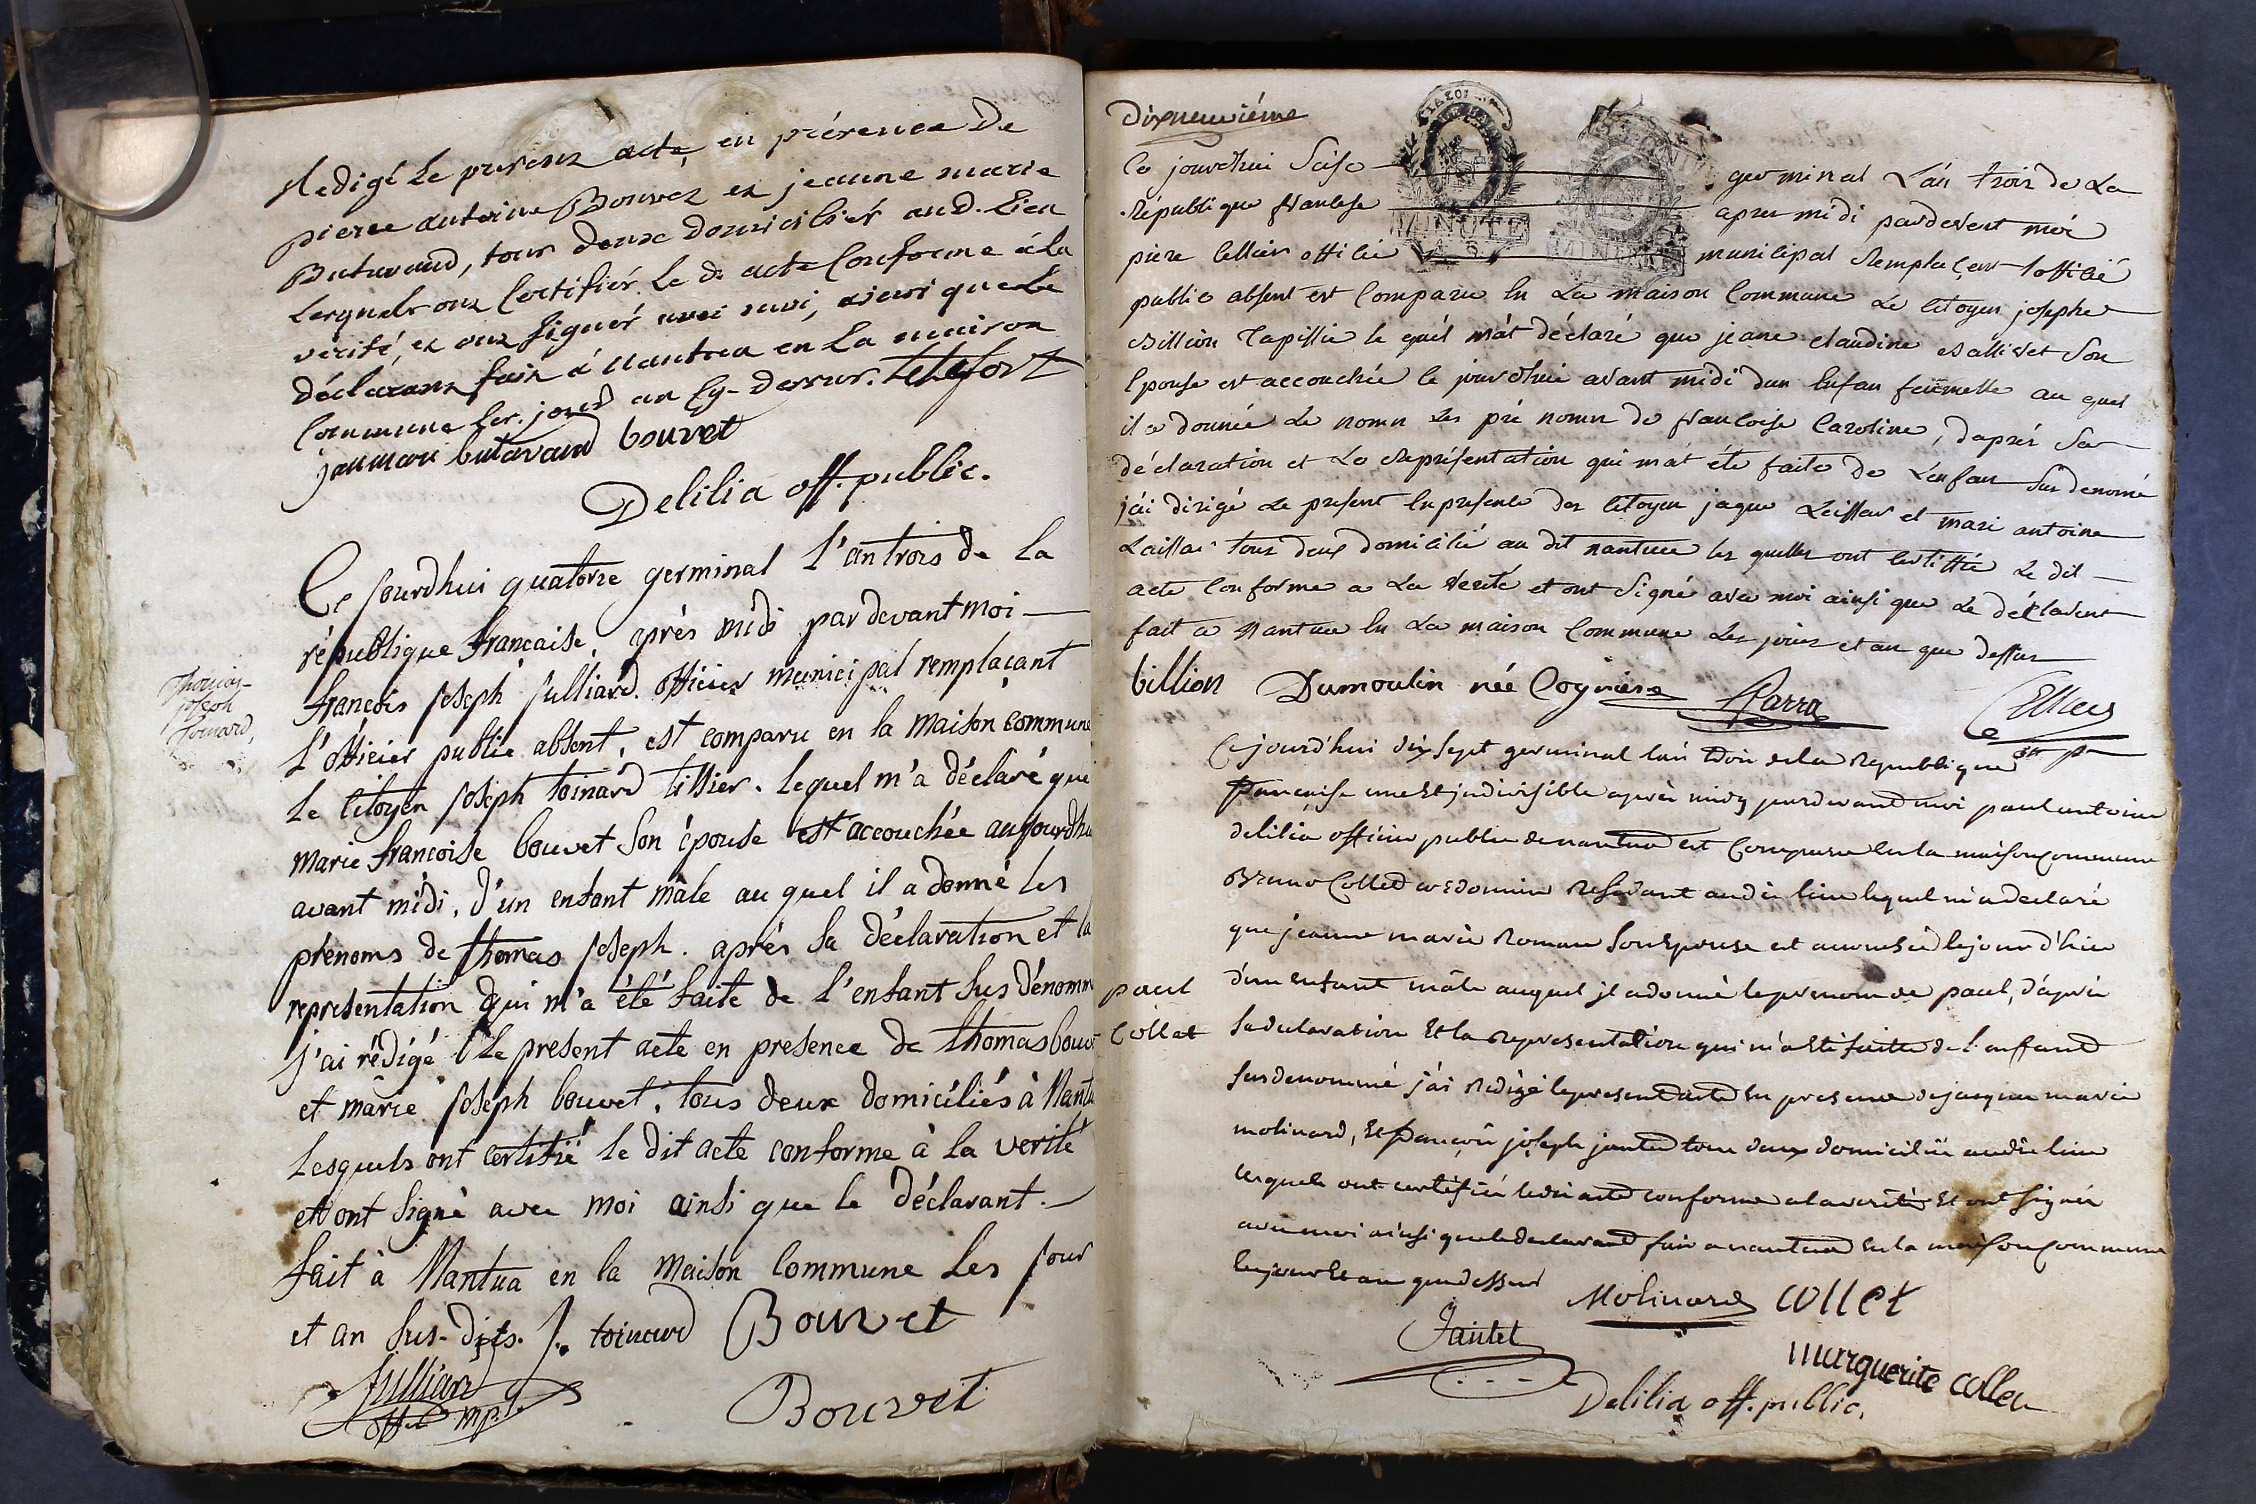 Redigé le present acte, en présence de
pierre antoine Bouvez ez jeanne marie
Butavand, tous deux domiciliés aud. lieu
lesquels onz certifiés le d. acte conforme à la
vérité, ez onz signés avec moi, ainsi que le
déclaranz faiz à nantua en la maison
commune les jour d an cy-dessus. tetefort
janmari butavand bouvet
Delilia off. public.
Ce jourdhui quatorze germinal l'an trois de la
république française, après midi par devant moi
françois joseph julliard officier municipal remplaçant
l'officier public absent, est comparu en la maison commune
le citoyen joseph toinard tissier. lequel m'a déclaré que
marie françoise bouvet son épouse est accouchée aujourdhui
avant midi, d'un enfant mâle au quel il a donné les
prénoms de thomas joseph. après sa déclaration et la
representation qui m'a été faite de l'enfant sus dénommé
j'ai rédigé le present acte en presence de thomas bouvet
et marie joseph bouvet, tous deux domiciliés à Nantua
lesquels ont certifié le dit acte conforme à la verité
et ont signé avec moi ainsi que le déclarant.
fait à Nantua en la maison commune les jour
et an sus-dits. J. toinard Bouvet
julliard
off. mpl.
Bouvet
Thomas
joseph
Toinard,
Dixneuviéme
Ce jourdhui seise germinal l'an trois de la
République franse apres midi pardevent moi
piere cellier officié municipal remplaçent l'officié
public absent est comparu en la maison commune le citoyen josephe
Billion tapissie le quel m'at déclaré que jeane claudine Ballivet son
epouse est accouchée ce jourdhui avant midi dun enfan feumelle au quel
il a donnée le nomn les pré nomn de francoise caroline, daprés sa
déclaration et la représentation qui m'at été faite de l'enfan sus denomé
j'ai dirigé le present en presence des citoyen jaque et mari antoine
tous deux domicilié au dit nantua les quelles ont certiffié le dit
acte conforme a la verité et ont signé avec moi ainsi que le déclarent
fait a nantua en la maison commune les jour et an que dessus
billion Dumoulin née Cogniere Parra Cellier
off. p
Cejourd'hui dix sept germinal l'an trois de la Republique
francaise une et indivisible après midy pardevand moi paul antoine
delilia officier public de nantua est comparu en la maison commune
Bruno Collet cordonnier residant audit lieu lequel m'a declaré
que jeanne marie Roman son epouse est accouchée le jour d'hier
d'un enfant mâle auquel il a donné le prenom de paul, d'après
sa declaration et la representation qui m'a été faitte de l'enffand
sus denommé j'ai redigé le present acte en presence de jacque marie
molinard, et françois joseph jantet tous deux domiciliés audit lieu
lesquels ont certifié ledit acte conforme a la verité et ont signés
avec moi ainsi que le declarand fait a nantua en la maison commune
les jour et an que dessus
paul
Collet
Molinard collet
Jantet
marguerite collet
Delilia off. public.
MINUTE